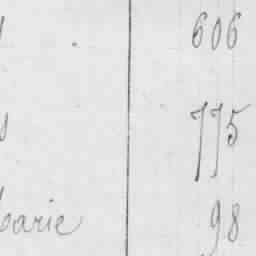 606
775
barie 98